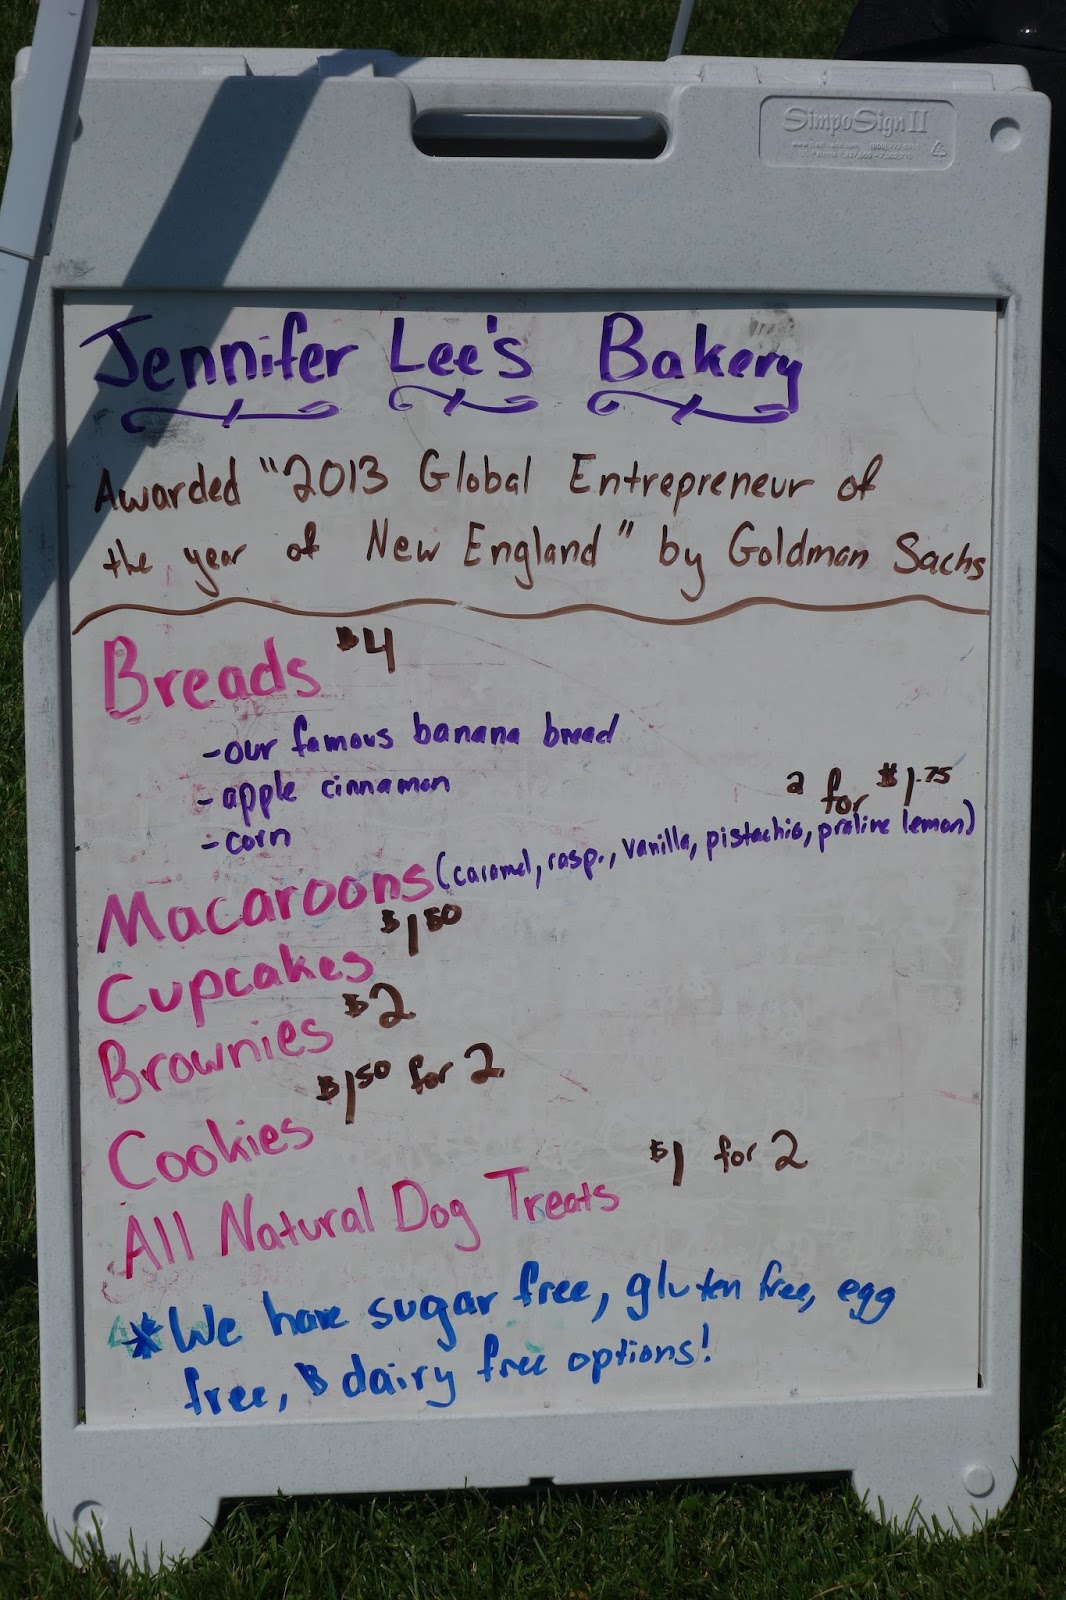 SimpoSign II
Jennifer Lee's Bakery
Awarded "2013 Global Entrepreneur of
the year of New England" by Goldman Sachs
Breads $4
-our famous banana bread
-apple cinnamon
-corn
2 for $1.75
Macaroons (caramel, rasp., vanilla, pistachio, praline lemon)
Cupcakes $150
Brownies $2
Cookies $150 for 2
All Natural Dog Treats $1 for 2
*We have sugar free, gluten free, egg
free, & dairy free options!